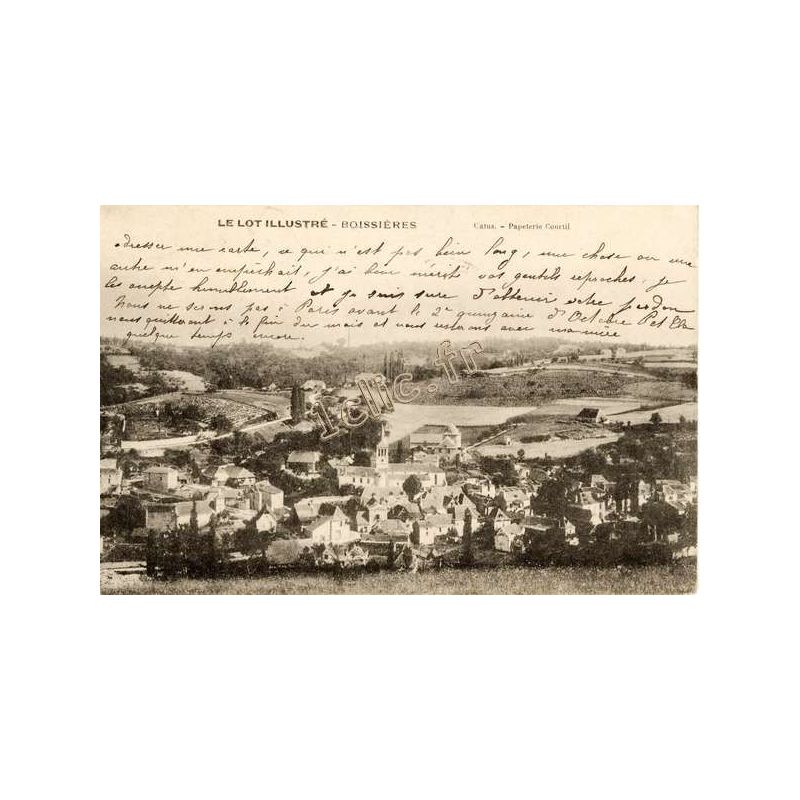 LE LOT ILLUSTRÉ - BOISSIÈRES
Catus. - Papeterie Courtil
adresser une carte, ce qui n'est pas bien long, une chose ou une
autre m'en empêchait, j'ai bien mérité vos gentils reproches, je
les accepte humblement et je suis sûre d'obtenir votre pardon
Nous ne serons pas à Paris avant la 2e quinzaine d'Octobre
nous quitteront à la fin du mois et nous resterons avec ma mère
quelque temps encore.
1clic.fr